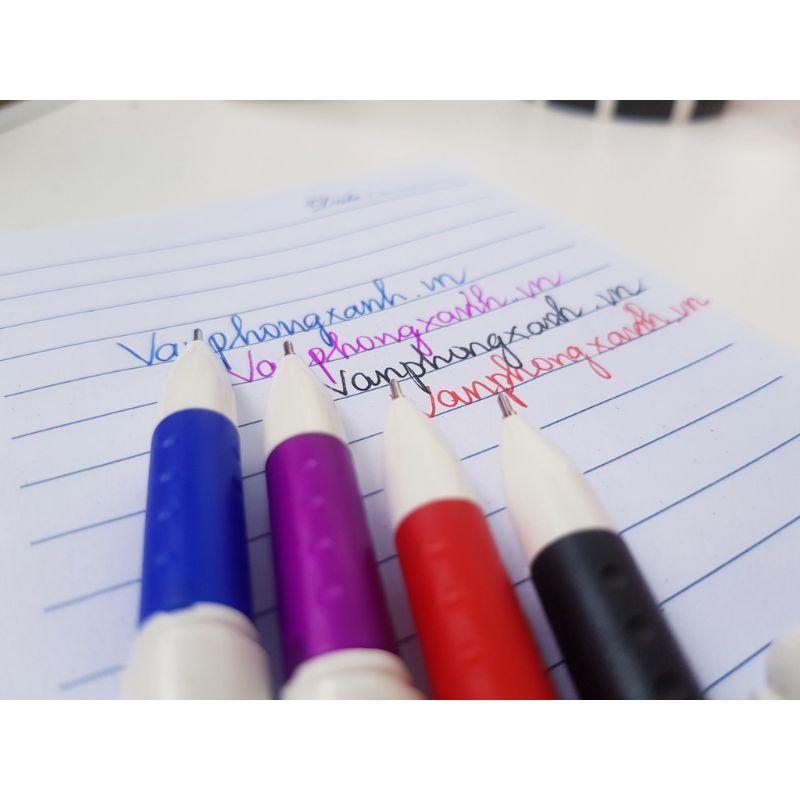 Date :
Vanphongxanh.vn
Vanphongxanh.vn
Vanphongxanh.vn
Vanphongxanh.vn